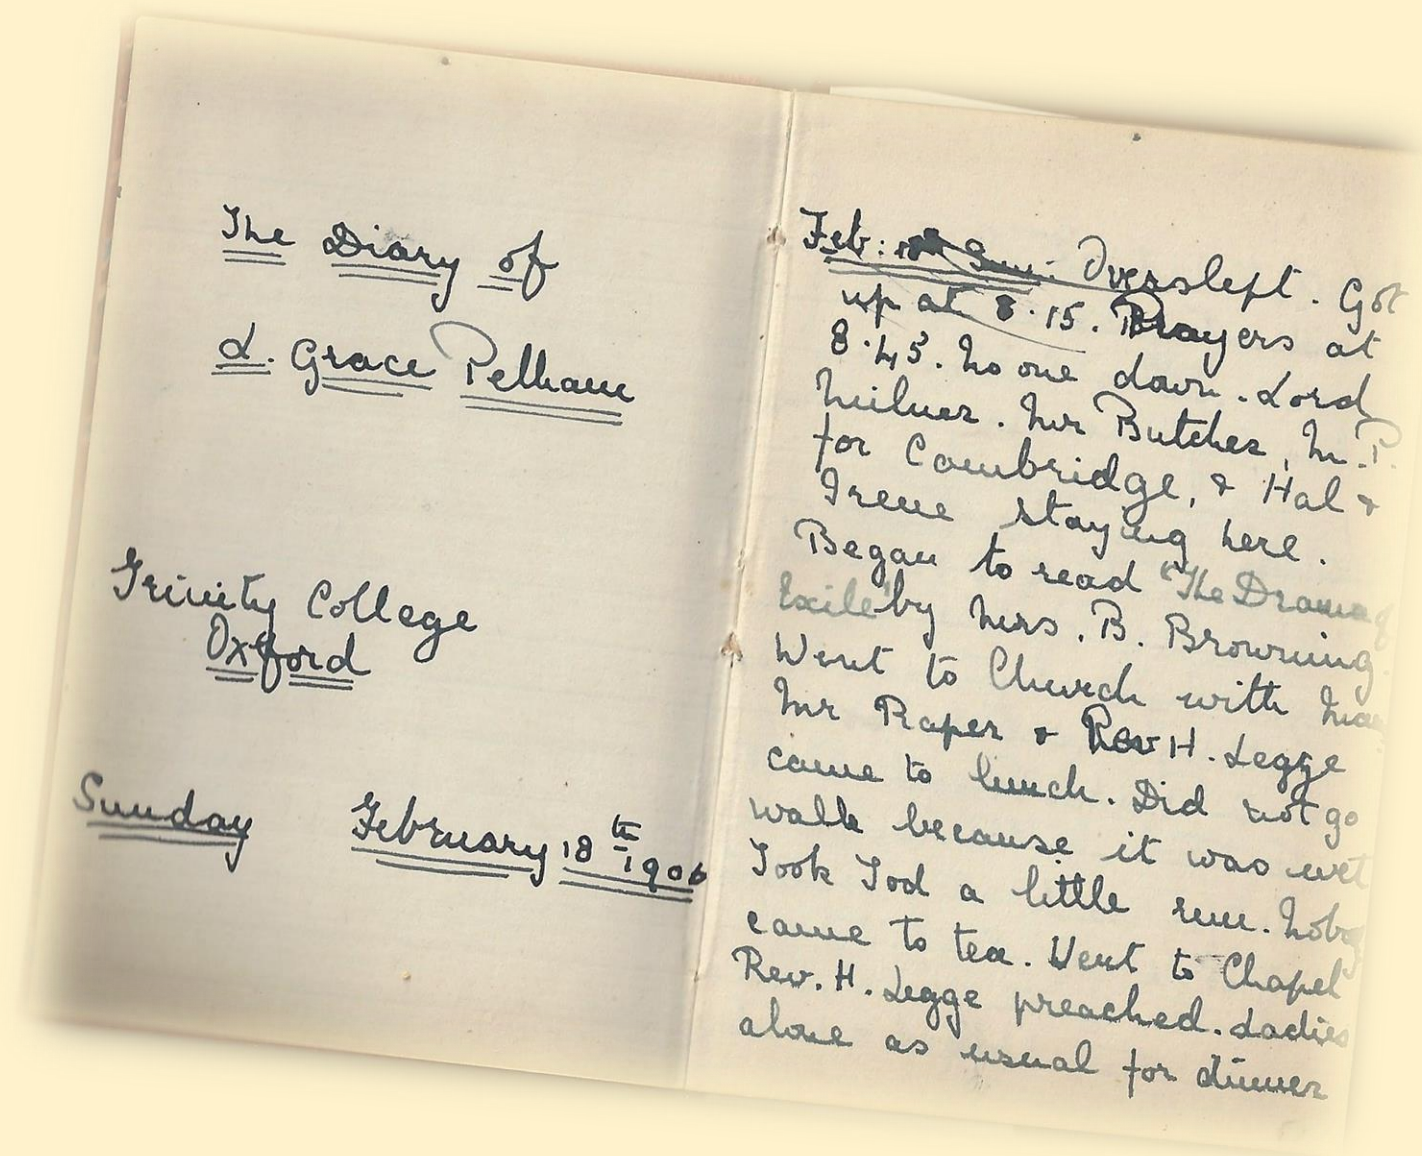 The Diary of
L. Grace Pelham
Trinity College
Oxford
Sunday February 18th 1906
Feb: 18th Sun: Overslept. Got
up at 8.15. Prayers at
8.45. No one down. Lord
Milner. Mr Butcher, M.P.
for Cambridge, & Hal &
Irene staying here.
Began to read "The Drama of
Exile" by Mrs. B. Browning.
Went to Church with
Mr Raper & Rev H. Legge
came to lunch. Did not go
walk because it was wet
Took Tod a little run.
came to tea. Went to Chapel
Rev. H. Legge preached. Ladies
alone as usual for dinner